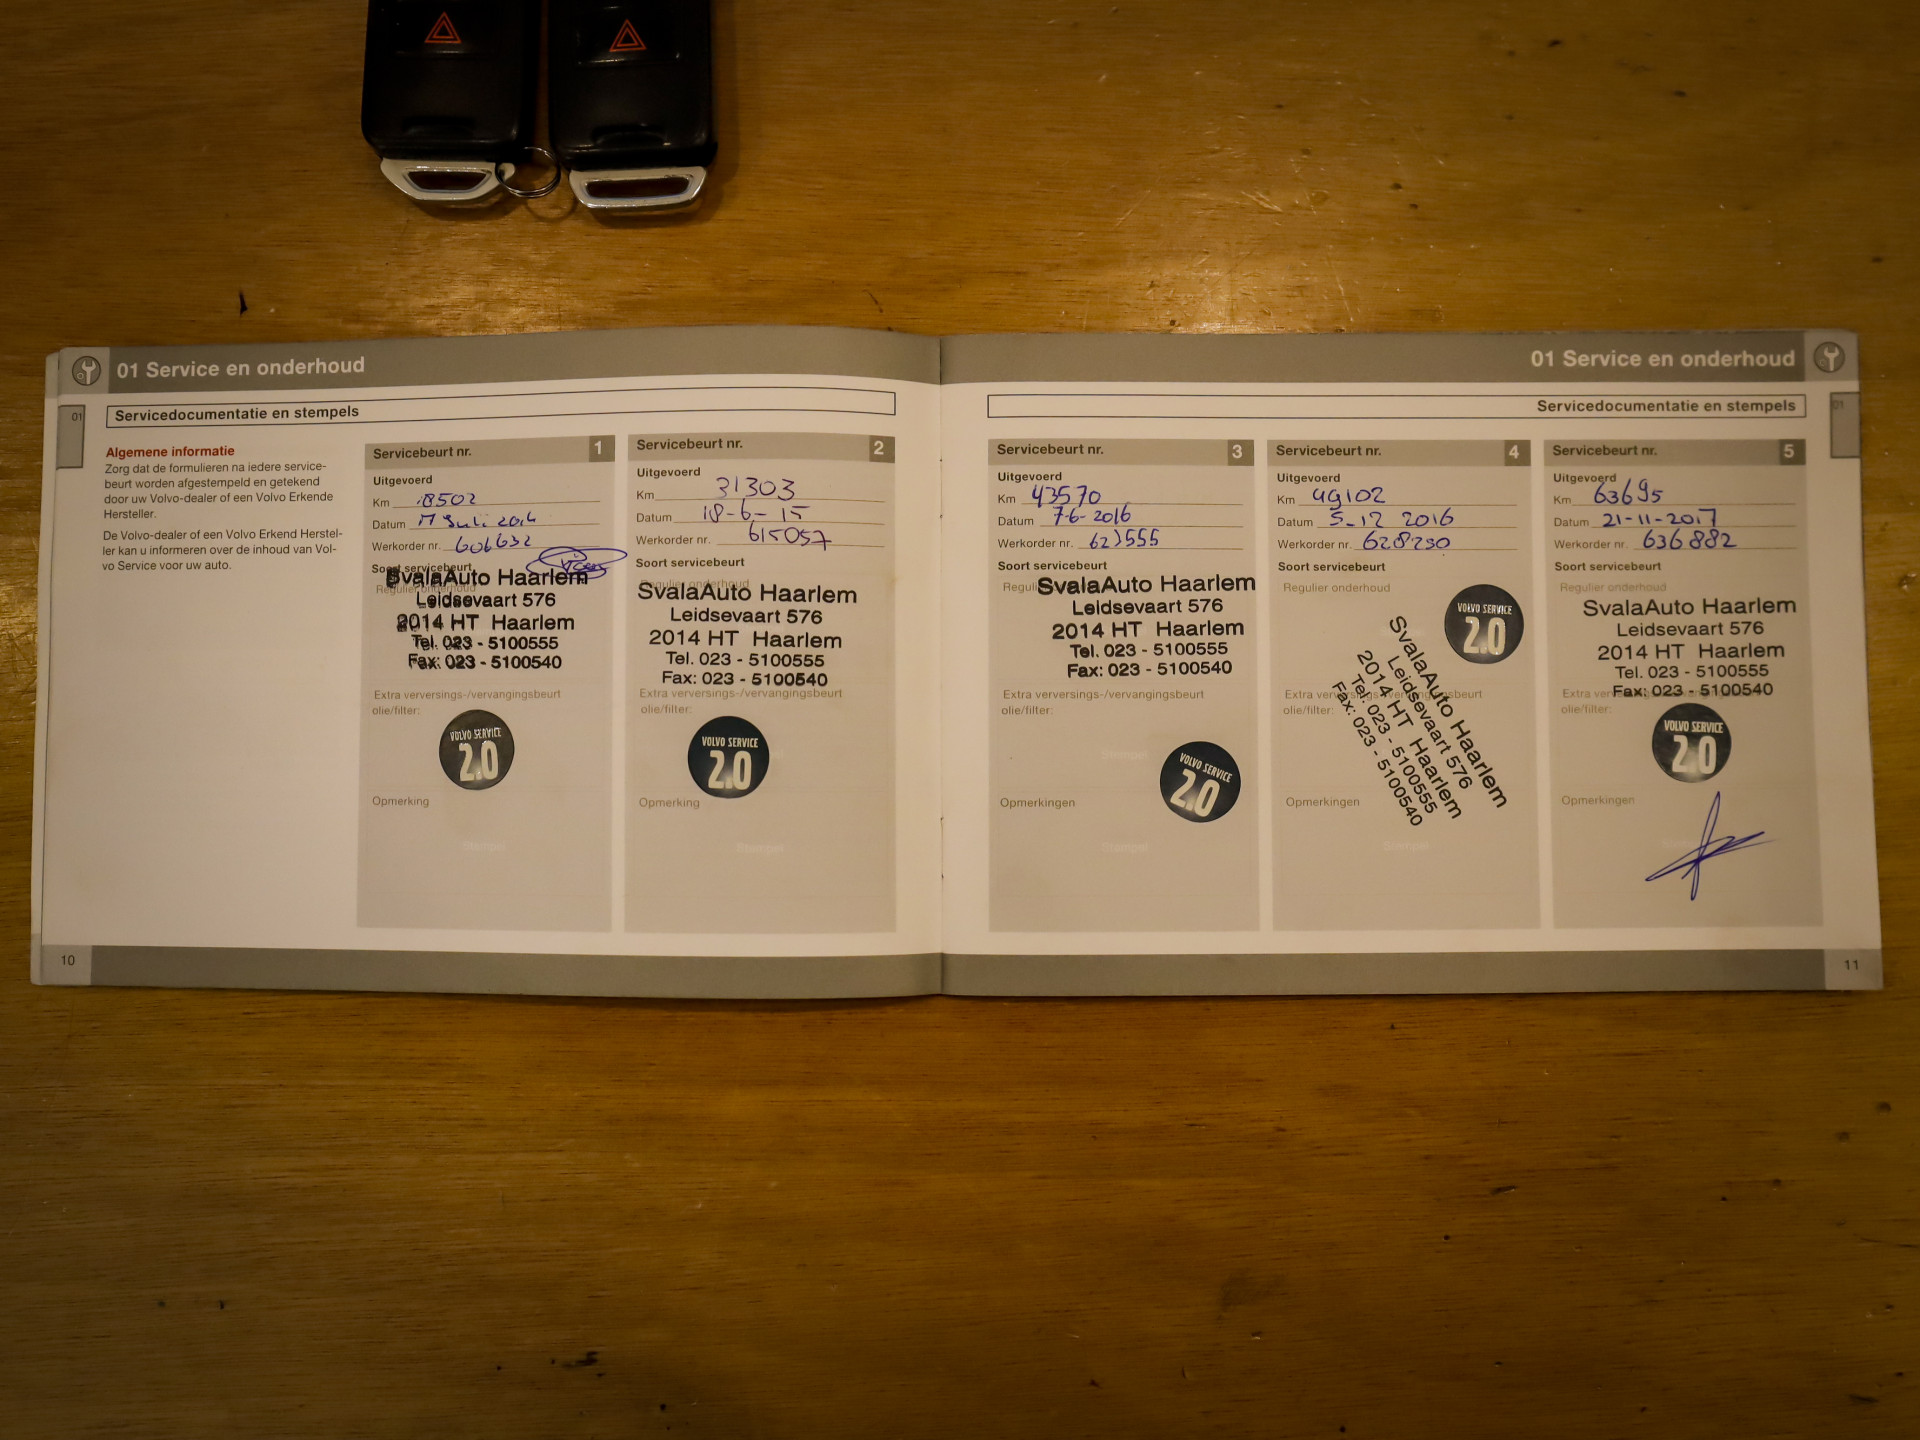 01 Service en onderhoud
01
Servicedocumentatie en stempels
Algemene informatie
Zorg dat de formulieren na iedere service-
beurt worden afgestempeld en getekend
door uw Volvo-dealer of een Volvo Erkende
Hersteller.
De Volvo-dealer of een Volvo Erkend Herstel-
ler kan u informeren over de inhoud van Vol-
vo Service voor uw auto.
Servicebeurt nr. 1
Uitgevoerd
Km 18502
Datum 17 Juli 2014
Werkorder nr. 606632
Soort servicebeurt
Regulier onderhoud
SvalaAuto Haarlem
Leidsevaart 576
2014 HT Haarlem
Tel. 023 - 5100555
Fax: 023 - 5100540
Extra verversings-/vervangingsbeurt
olie/filter:
VOLVO SERVICE
2.0
Opmerking
Stempel
Servicebeurt nr. 2
Uitgevoerd
Km 31303
Datum 18-6-15
Werkorder nr. 615057
Soort servicebeurt
Regulier onderhoud
SvalaAuto Haarlem
Leidsevaart 576
2014 HT Haarlem
Tel. 023 - 5100555
Fax: 023 - 5100540
Extra verversings-/vervangingsbeurt
olie/filter:
VOLVO SERVICE
2.0
Opmerking
Stempel
10
01 Service en onderhoud
01
Servicedocumentatie en stempels
Servicebeurt nr. 3
Uitgevoerd
Km 43570
Datum 7-6-2016
Werkorder nr.
Soort servicebeurt
SvalaAuto Haarlem
Leidsevaart 576
2014 HT Haarlem
Tel. 023 - 5100555
Fax: 023 - 5100540
Extra verversings-/vervangingsbeurt
olie/filter:
Stempel
VOLVO SERVICE
2.0
Opmerkingen
Stempel
Servicebeurt nr. 4
Uitgevoerd
Km 49102
Datum 5-12 2016
Werkorder nr. 628250
Soort servicebeurt
Regulier onderhoud
VOLVO SERVICE
2.0
SvalaAuto Haarlem
Leidsevaart 576
2014 HT Haarlem
Tel. 023 - 5100555
Fax: 023 - 5100540
Extra verversings-/vervangingsbeurt
olie/filter:
Opmerkingen
Stempel
Servicebeurt nr. 5
Uitgevoerd
Km 63695
Datum 21-11-2017
Werkorder nr. 636882
Soort servicebeurt
Regulier onderhoud
SvalaAuto Haarlem
Leidsevaart 576
2014 HT Haarlem
Tel. 023 - 5100555
Fax: 023 - 5100540
olie/filter:
VOLVO SERVICE
2.0
Opmerkingen
11